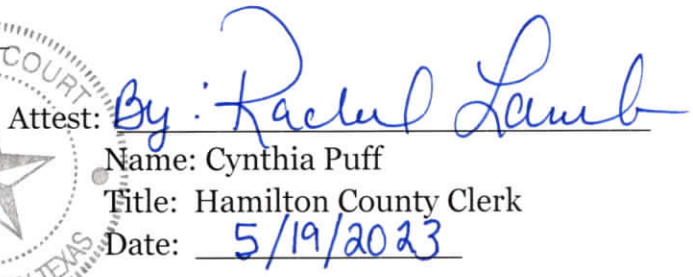 COURT
Attest: By: Rachel Lamb
Name: Cynthia Puff
Title: Hamilton County Clerk
Date: 5/19/2023
TEXAS